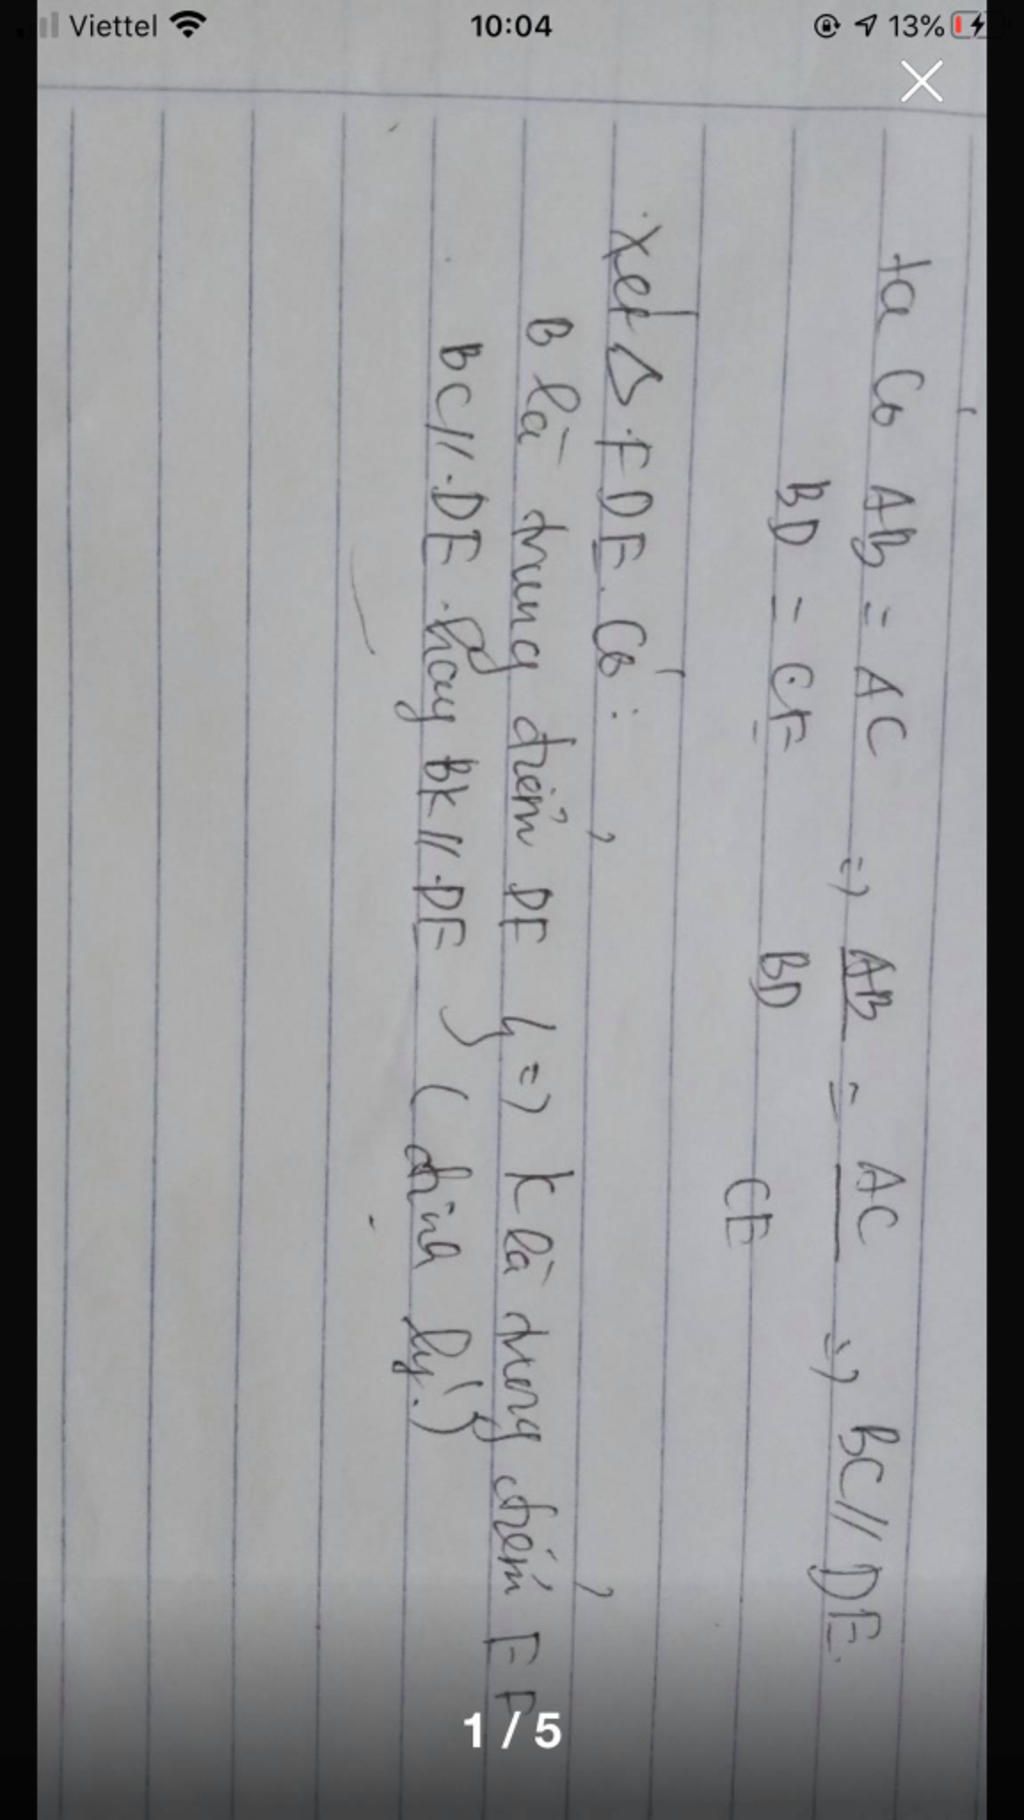 Viettel 10:04 13%
ta có AB = AC => AB = AC => BC // DE.
BD = CE BD CE
xét Δ FDE có:
B là trung điểm DF } => K là trung điểm EF
BC // DE hay BK // DE } (định lý.)
1 / 5